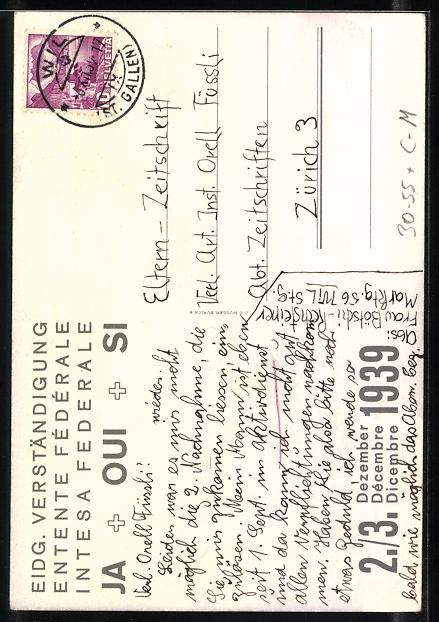 EIDG. VERSTÄNDIGUNG
ENTENTE FÉDÉRALE
INTESA FEDERALE
JA + OUI + SI
Verl. Orell Füssli!
Leider war es mir nicht
möglich die 2. Nachnahme, die
Sie mir zukommen liessen, ein-
zulösen. Mein Mann ist eben
seit 1. Sept. im Aktivdienst
und da kann ich nicht gut
allen Verpflichtungen nachkom-
men. Haben Sie also bitte noch
etwas Geduld, ich werde so
bald wie möglich das Abon. beg.
2./3. Dezember
Décembre
Dicembre 1939
Abs:
Frau Botsch-
Marktg. 56 Wil St. G.
WIL
(ST. GALLEN)
HELVETIA
Eltern-Zeitschrift
Verl. Art. Inst. Orell Füssli
Abt. Zeitschriften
Zürich 3
30-55 + C-M